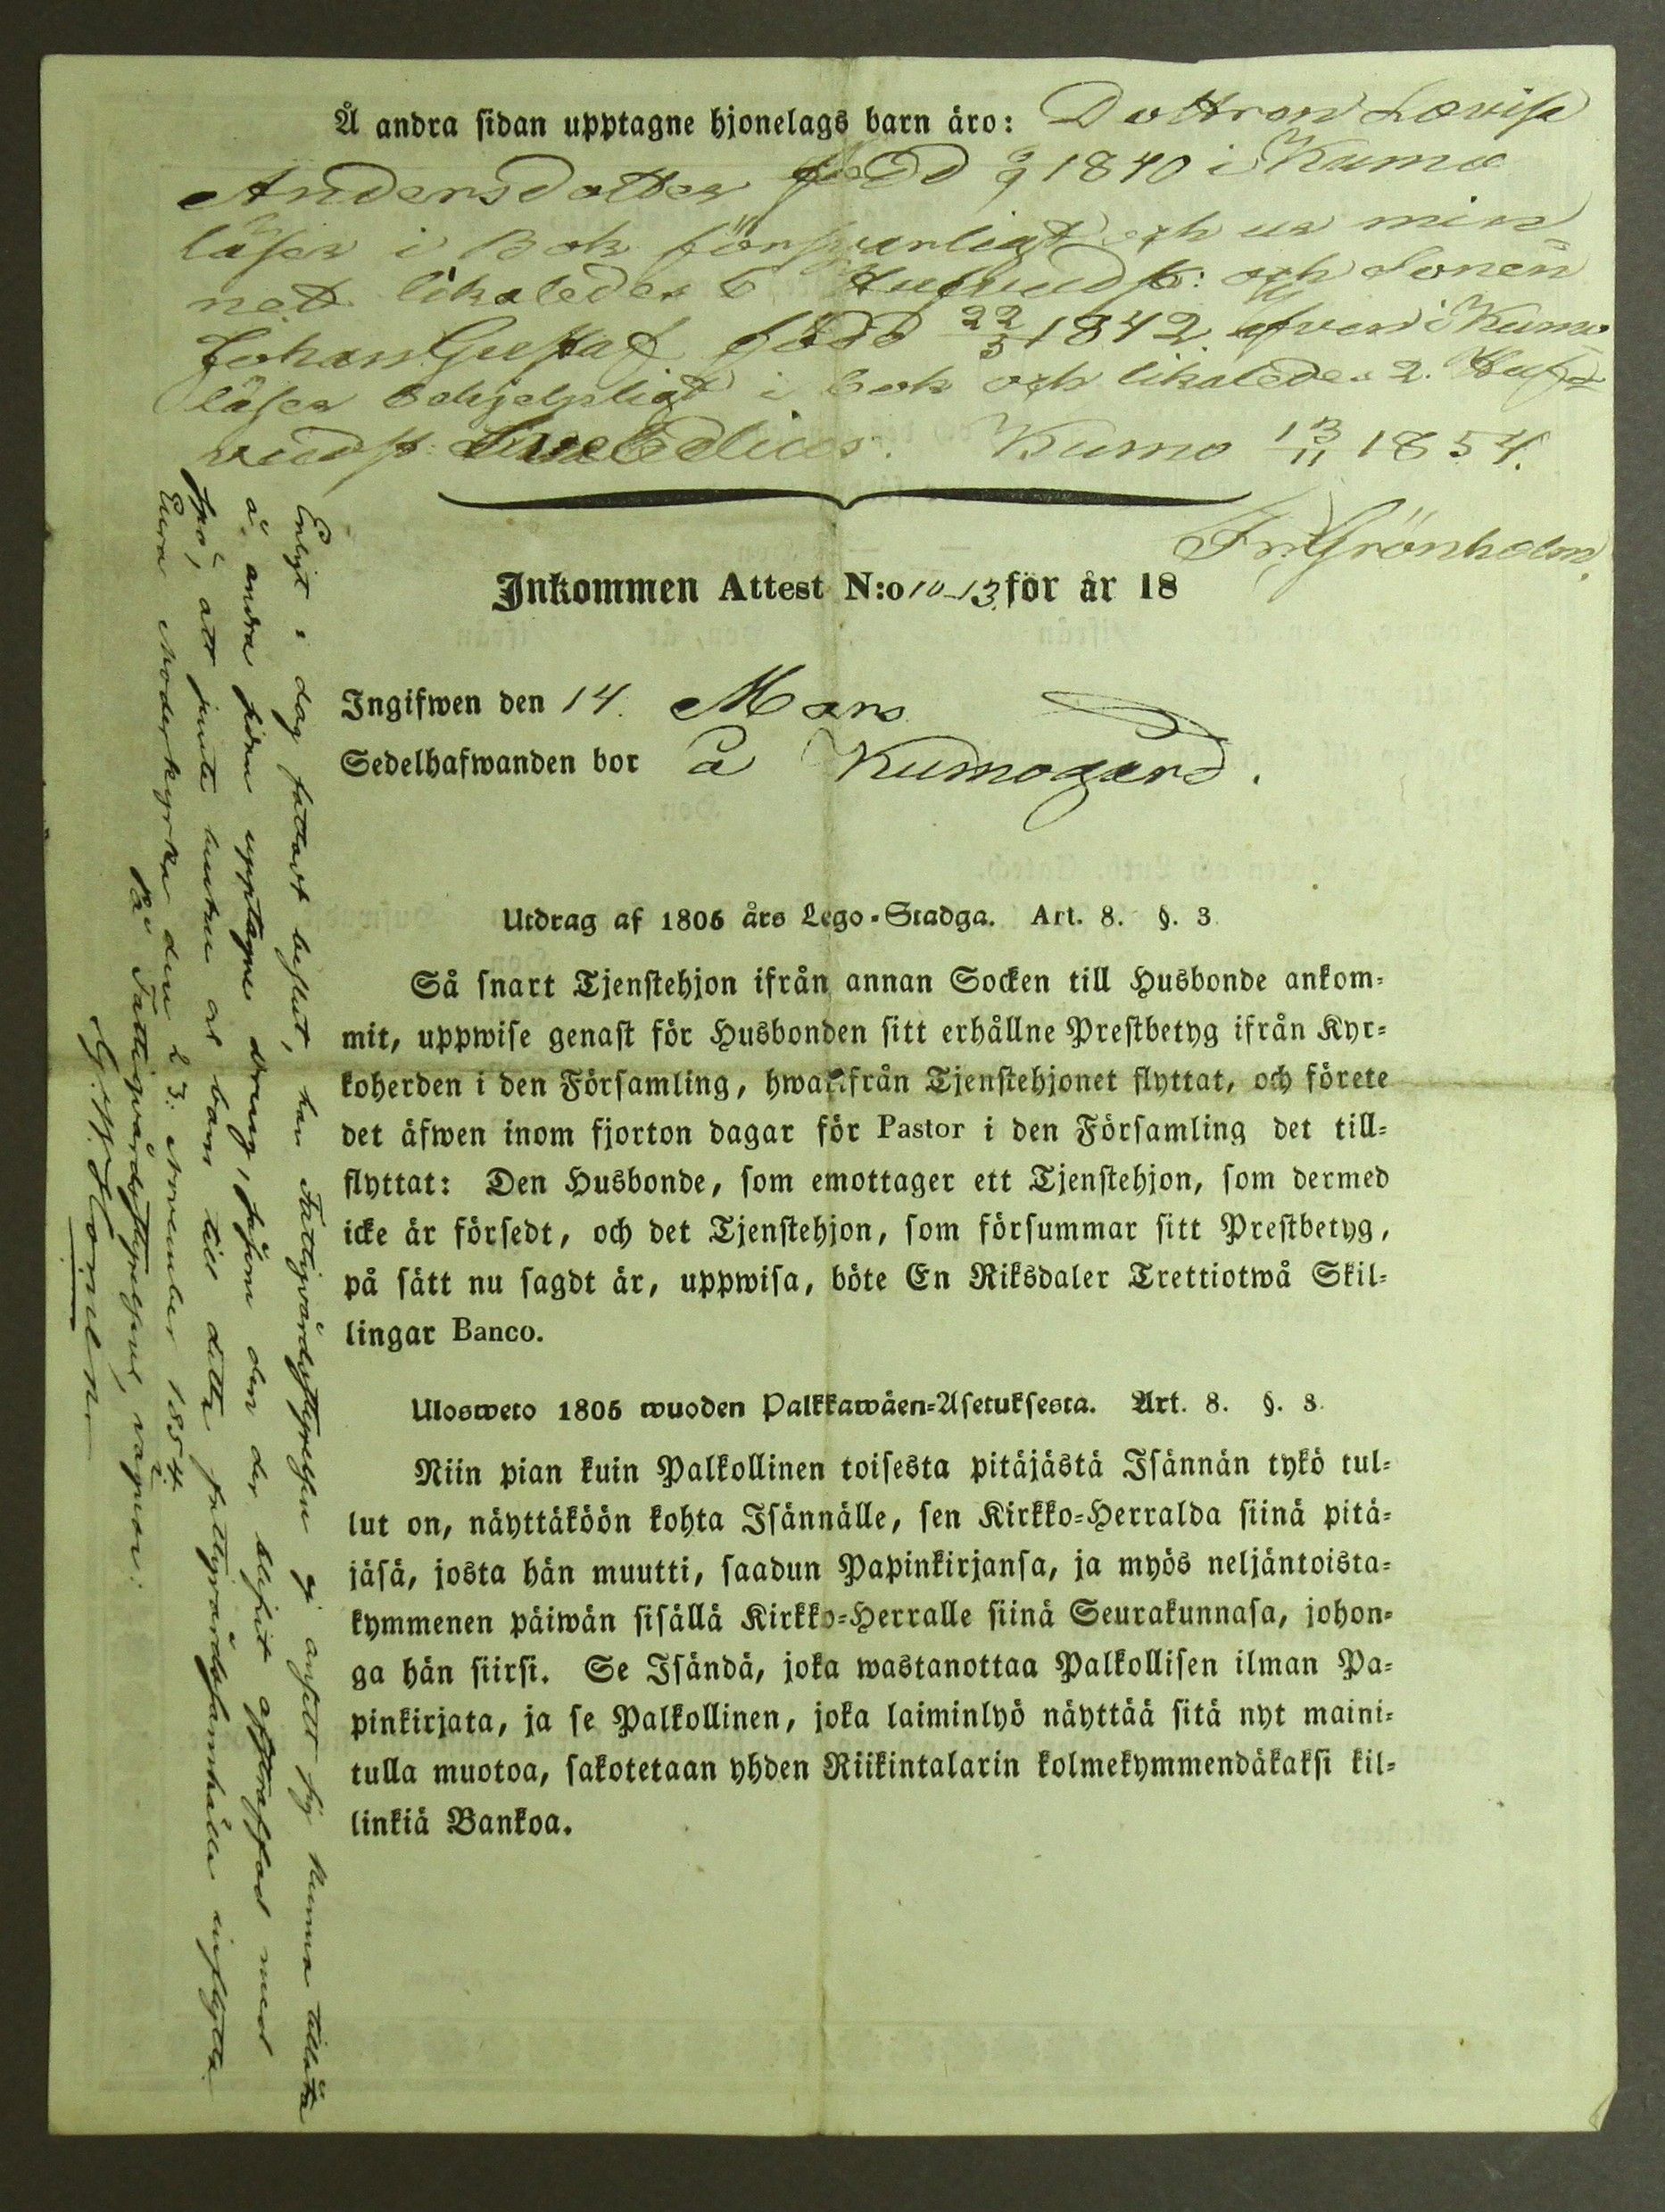 Å andra sidan upptagne hjonelags barn äro: Dottren Lovisa
Andersdotter född 9/9 1840 i Kumo
läser i Bok försvarligt och ur min
net likaledes 6 Hufvudst: och Sonen
Johan Gustaf född 22/3 1842 äfven i Kumo
läser behjelpligt i bok och likaledes 2. Huf
vudst. Kumo 13/11 1854.
Fr. Grönholm.
Inkommen Attest N:o 10-13 för år 18
Ingifwen den 14. Mars
Sedelhafwanden bor å Kumogård.
Utdrag af 1805 års Lego-Stadga. Art. 8. §. 3.
Så snart Tjenstehjon ifrån annan Socken till Husbonde ankom-
mit, uppwise genast för Husbonden sitt erhållne Prestbetyg ifrån Kyr-
koherden i den Församling, hwarifrån Tjenstehjonet flyttat, och förete
det äfwen inom fjorton dagar för Pastor i den Församling det till-
flyttat: Den Husbonde, som emottager ett Tjenstehjon, som dermed
icke är försedt, och det Tjenstehjon, som försummar sitt Prestbetyg,
på sätt nu sagdt är, uppwisa, böte En Riksdaler Trettiotwå Skil-
lingar Banco.
Ulosweto 1805 wuoden Palkkawäen-Asetuksesta. Art. 8. §. 3.
Niin pian kuin Palkollinen toisesta pitäjästä Isännän tykö tul-
lut on, näyttäköön kohta Isännälle, sen Kirkko-Herralda siinä pitä-
jäsä, josta hän muutti, saadun Papinkirjansa, ja myös neljäntoista-
kymmenen päiwän sisällä Kirkko-Herralle siinä Seurakunnasa, johon-
ga hän siirsi. Se Isändä, joka wastanottaa Palkollisen ilman Pa-
pinkirjata, ja se Palkollinen, joka laiminlyö näyttää sitä nyt maini-
tulla muotoa, sakotetaan yhden Riikintalarin kolmekymmendäkaksi kil-
linkiä Bankoa.
Enligt i dag fattadt beslut, har Fattigvårdsstyrelsen ej ansett sig kunna tillåta
å andra sidan upptagne dräng, såsom den der blifvit afstraffad med
spö, att jemte hustru och barn till detta fattigvårdssamhälle inflytta
Eura Moderkyrka den 23: November 1854.
På Fattigvårdsstyrelsens vägnar: